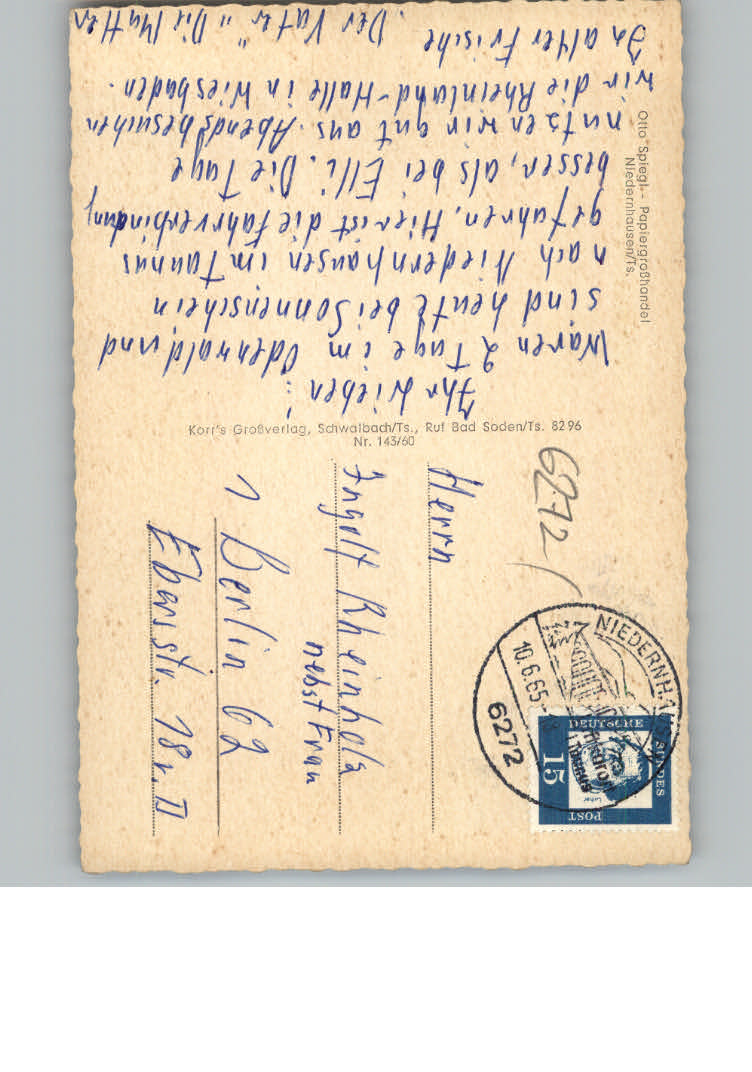 Ihr Lieben!
Waren 2 Tage im Odenwald, und
sind heute bei Sonnenschein
nach Niedernhausen im Taunus
gefahren. Hier ist die Fahrverbindung
besser, als bei Elli. Die Tage
nutzen wir gut aus. Abends besuchen
wir die Rheinland-Halle in Wiesbaden.
In alter Frische
Der Vater " Die Mutter
Otto Spiegl - Papiergroßhandel
Niedernhausen/Ts.
Korr's Großverlag, Schwalbach/Ts., Ruf Bad Soden/Ts. 8296
Nr. 143/60
6272
Herrn
Ingolf Rheinholz
nebst Frau
1 Berlin 62
Ebersstr. 18 v. II
NIEDERNHAUSEN
10.6.65
6272
DEUTSCHE
BUNDES
POST
15
Luther